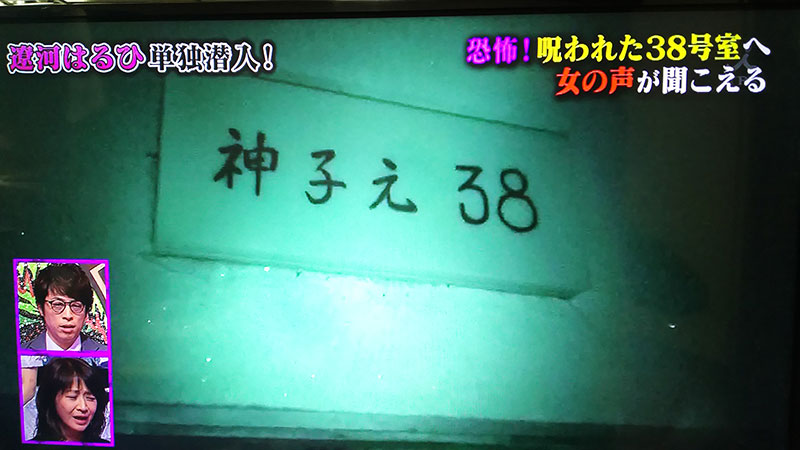 遼河はるひ単独潜入!
恐怖!呪われた38号室へ
女の声が聞こえる
神子元 38